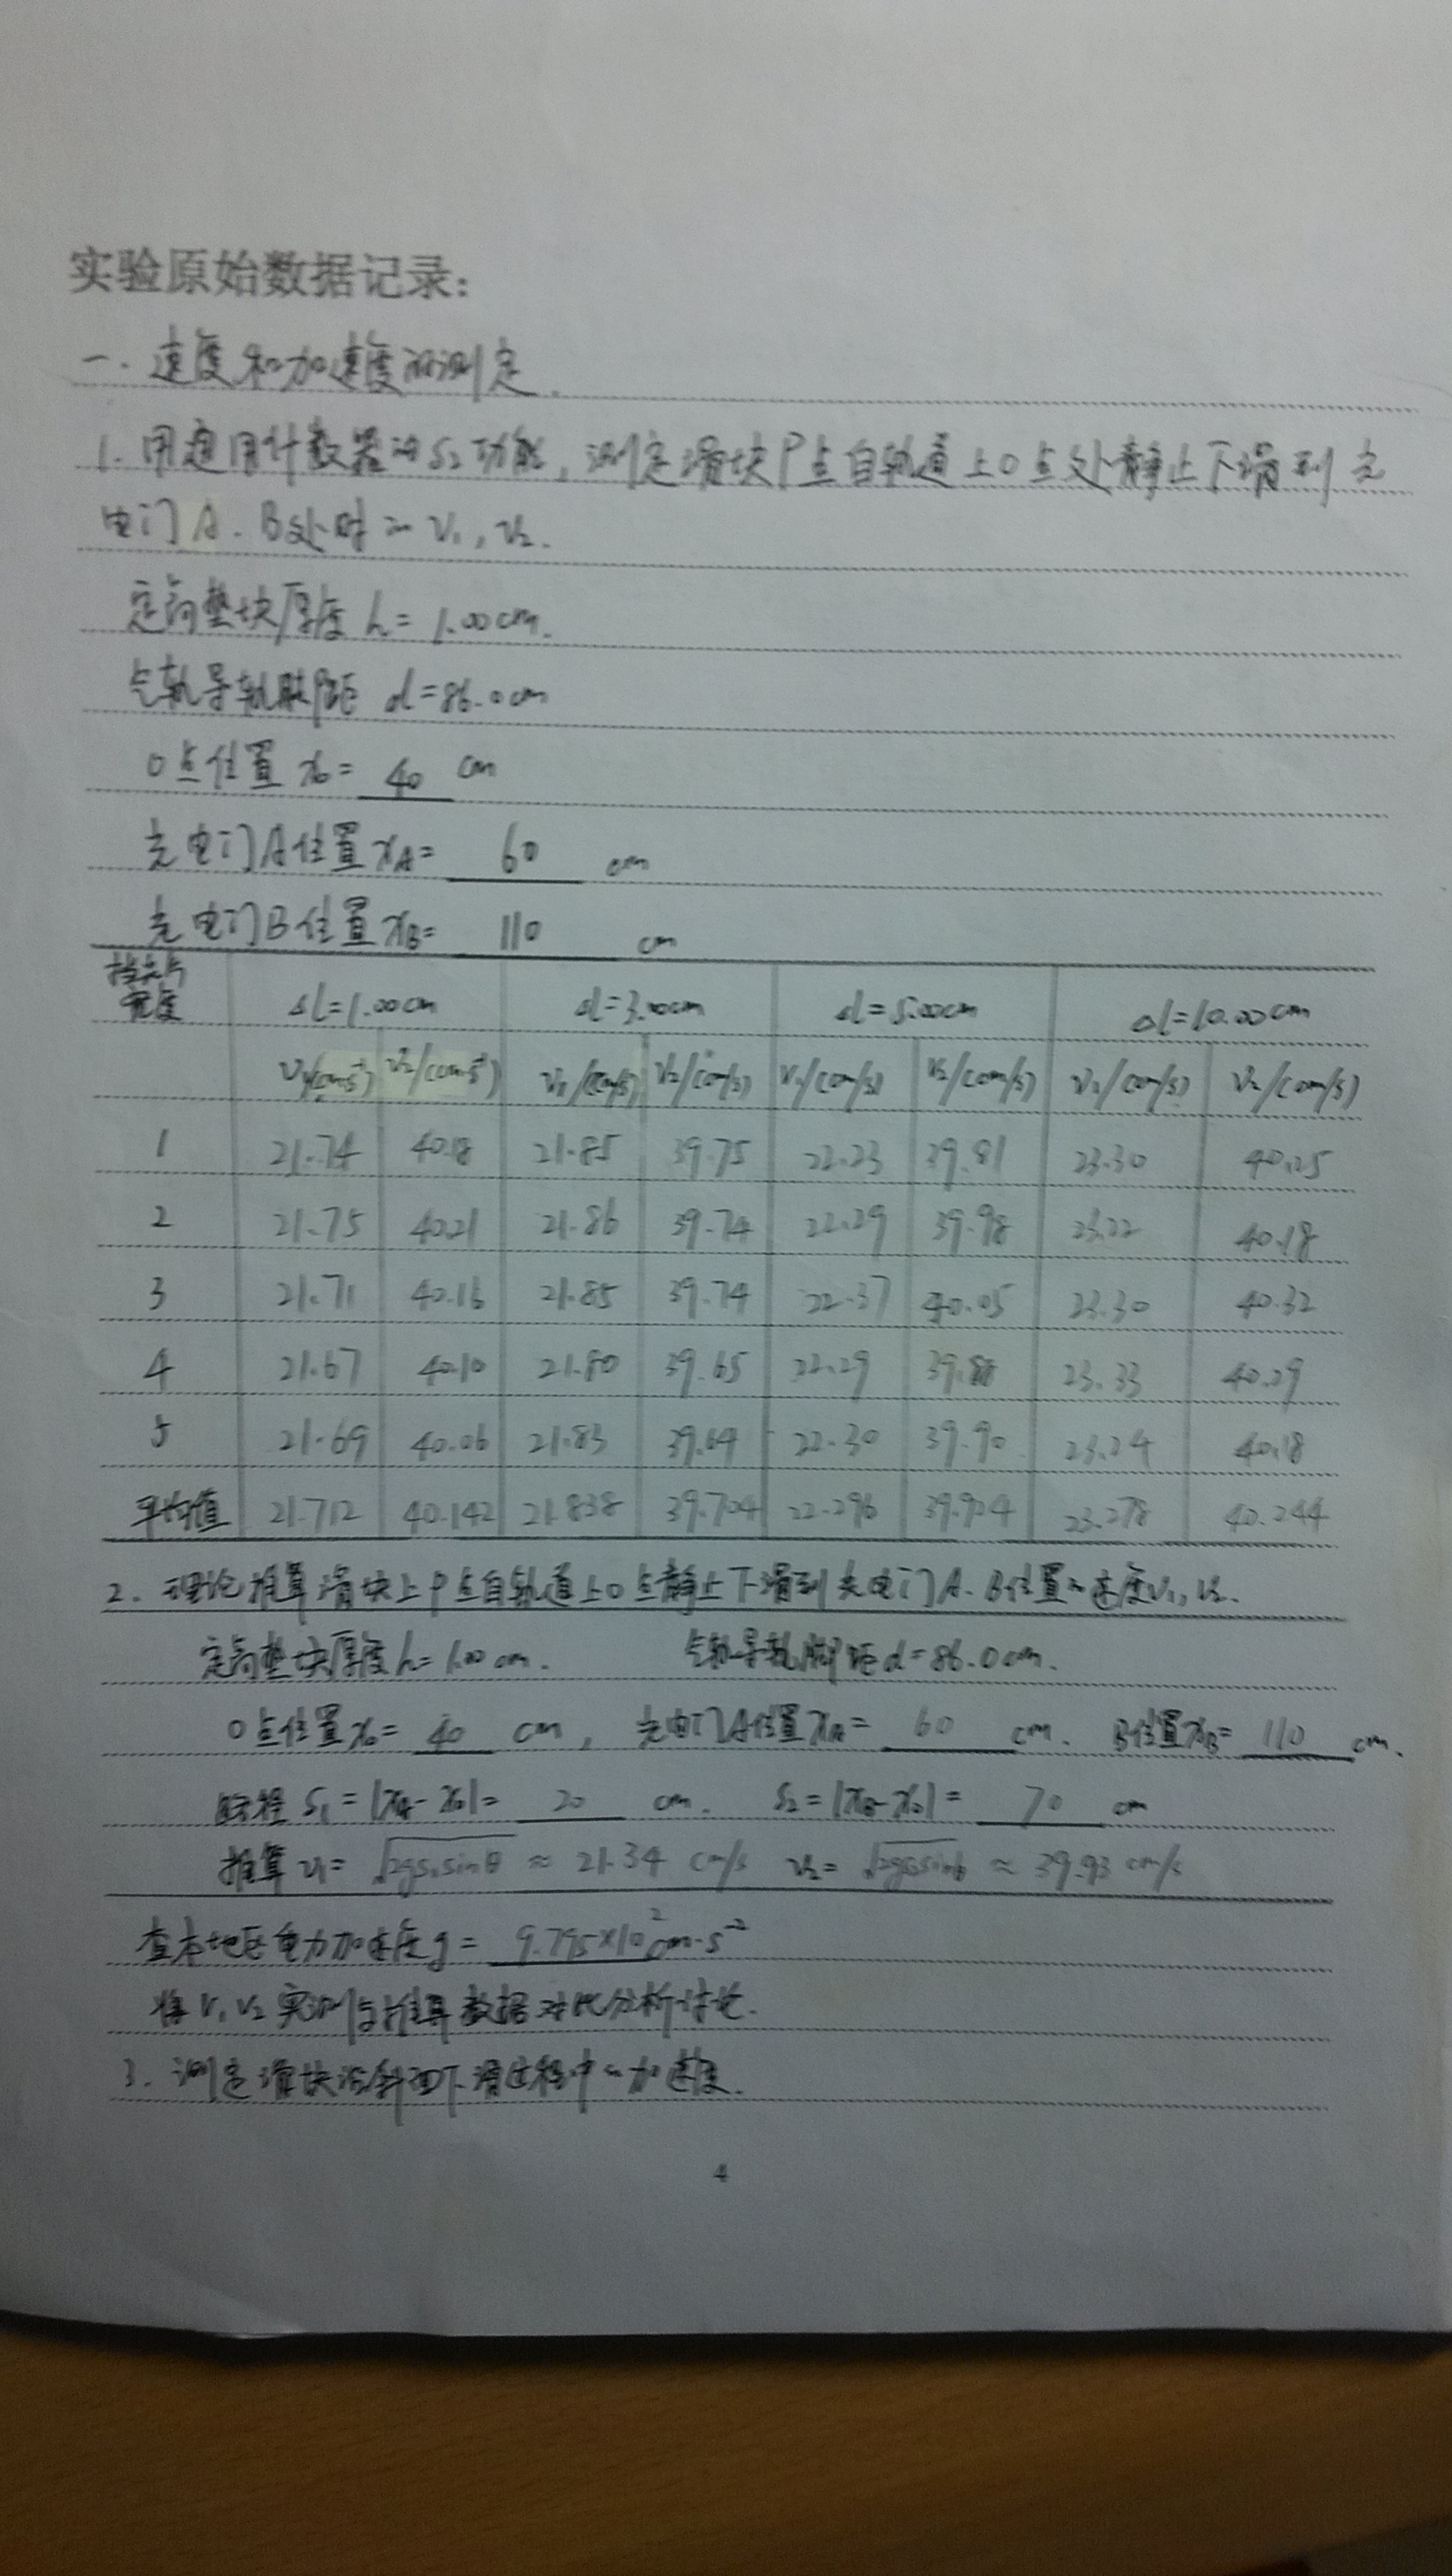 实验原始数据记录:
一. 速度和加速度的测定.
1. 用通用计数器的S₂功能, 测定滑块P点自轨道上O点处静止下滑到光
电门A. B处时的V₁, V₂.
定高垫块厚度 h= 1.00cm.
气轨导轨脚距 d=86.0cm
O点位置 x₀= 40 cm
光电门A位置xA= 60 cm
光电门B位置xB= 110 cm
挡光片宽度 Δl=1.00cm Δl=3.00cm Δl=5.00cm Δl=10.00cm
V₁/(cm·s⁻¹) V₂/(cm·s⁻¹) V₁/(cm/s) V₂/(cm/s) V₁/(cm/s) V₂/(cm/s) V₁/(cm/s) V₂/(cm/s)
1 21.74 40.18 21.85 39.75 22.23 39.81 23.30 40.25
2 21.75 40.21 21.86 39.74 22.29 39.98 23.22 40.18
3 21.71 40.16 21.85 39.74 22.37 40.05 23.30 40.32
4 21.67 40.10 21.80 39.65 22.29 39.88 23.33 40.29
5 21.69 40.06 21.83 39.64 22.30 39.90 23.24 40.18
平均值 21.712 40.142 21.838 39.704 22.296 39.924 23.278 40.244
2. 理论推算滑块上P点自轨道上O点静止下滑到光电门A. B位置的速度V₁, V₂.
定高垫块厚度h= 1.00 cm. 气轨导轨脚距d=86.0cm.
O点位置x₀= 40 cm, 光电门A位置xA= 60 cm. B位置xB= 110 cm.
路程 S₁ = |xA- x₀|= 20 cm. S₂ = |xB-x₀| = 70 cm
推算 V₁= √2gs₁sinθ ≈ 21.34 cm/s V₂= √2gs₂sinθ ≈ 39.93 cm/s
查本地区重力加速度g= 9.795×10²cm·s⁻²
将V₁ V₂ 实测与推算数据对比分析讨论.
3. 测定滑块沿斜面下滑过程中的加速度.
4